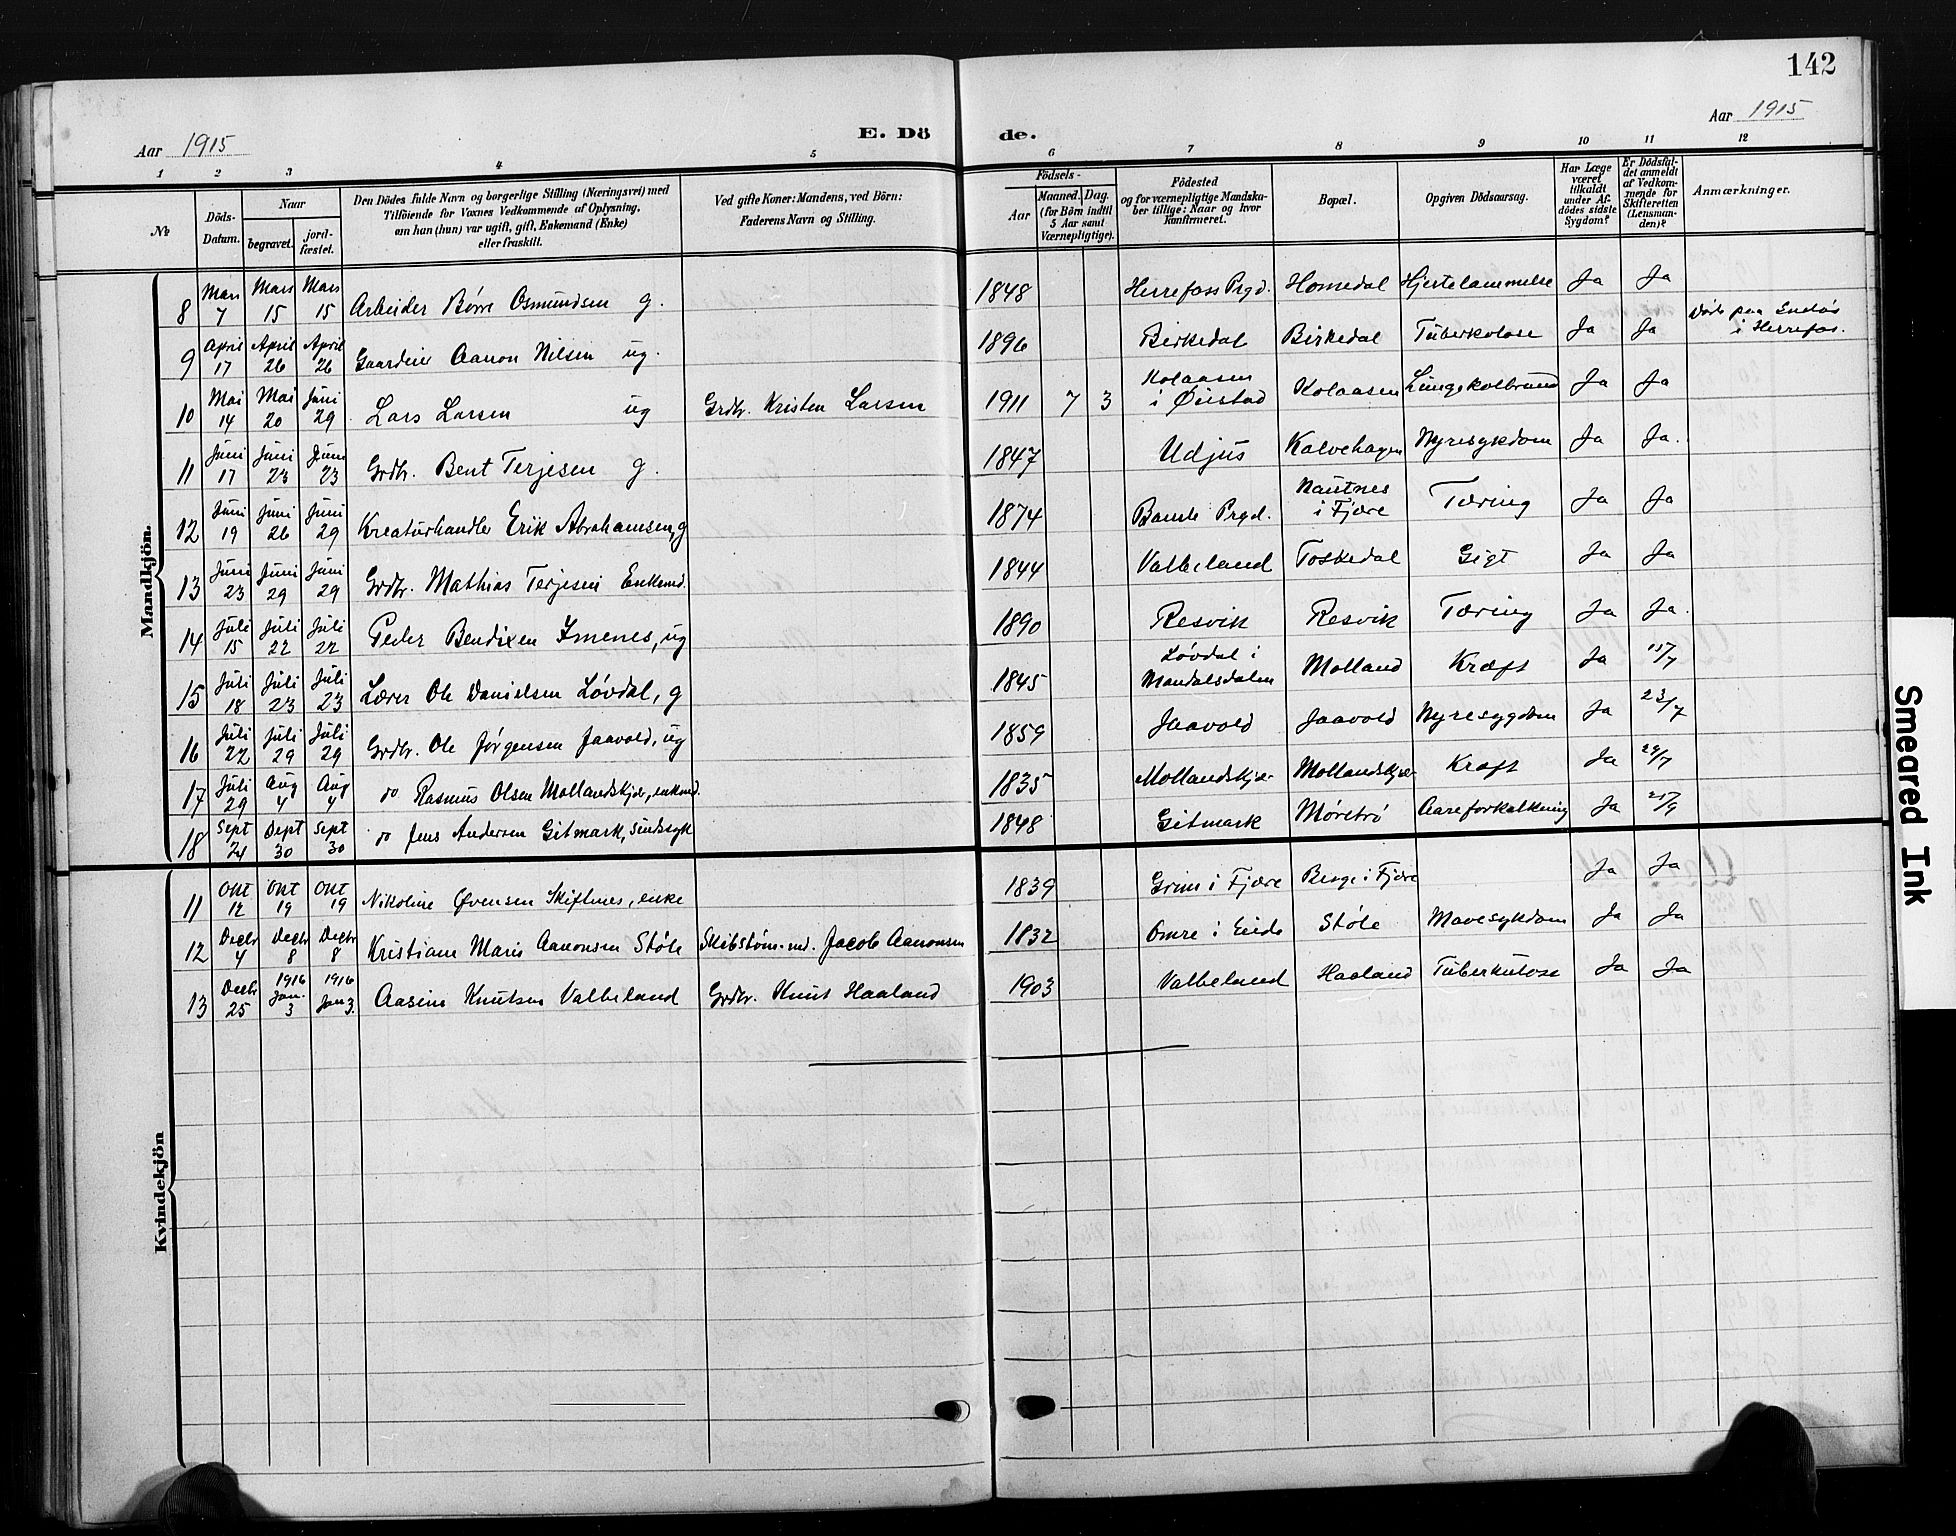 142
Aar 1915
E. Dö de.
Aar 1915
1 2 3 4 5 6 7 8 9 10 11 12
№
Döds-Datum.
Naar
begravet.
jordfæstet.
Den Dödes fulde Navn og borgerlige Stilling (Næringsvei) med
Tilföiende for Voxnes Vedkommende af Oplysning,
om han (hun) var ugift, gift, Enkemand (Enke)
eller fraskilt.
Ved gifte Koner: Mandens, ved Börn:
Faderens Navn og Stilling.
Födsels-
Aar
Maaned. Dag.
(for Börn indtil
5 Aar samt
Værnepligtige).
Födested
og for værnepligtige Mandskaber tillige: Naar og hvor
konfirmeret.
Bopæl.
Opgiven Dödsaarsag.
Har Læge
været
tilkaldt
under Afdödes sidste
Sygdom?
Er Dödsfaldet anmeldt
af Vedkommende for
Skifteretten
(Lensmanden)?
Anmærkninger.
Mandkjön.
8 Mars 7 Mars 15 Mars 15 Arbeider Børre Osmundsen g. 1848 Herrefoss Prgd. Homedal Hjertelammelse Ja Ja
9 April 17 April 26 April 26 Aanon Nilsen ug. 1896 Birkedal Birkedal Tuberkolose Ja Ja Døde paa i Herrefos.
10 Mai 14 Mai 20 Juni 29 Lars Larsen ug Grdbr. Kristen Larsen 1911 7 3 Kolaasen i Øiestad Kolaasen Lungekolbrand Ja Ja
11 Juni 17 Juni 23 Juni 23 Grdbr. Bent Terjesen g. 1847 Udjus Kalvehagen Nyresykdom Ja Ja.
12 Juni 19 Juni 26 Juni 29 Kreaturhandler Erik Abrahamsen, g 1874 Bamle Prgd. i Fjære Tæring Ja Ja
13 Juni 23 Juni 29 Juni 29 Grdbr. Mathias Terjesen Enkemd. 1844 Valbeland Toskedal Gigt Ja Ja
14 Juli 15 Juli 22 Juli 22 Peder Bendixen Imenes, ug 1890 Resvik Resvik Tæring Ja Ja.
15 Juli 18 Juli 23 Juli 23 Lærer Ole Danielsen Løvdal, g 1845 Løvdal i Mandalsdalen Molland Kræft Ja 15/7
16 Juli 22 Juli 29 Juli 29 Grdbr. Ole Jørgensen Jaavold, ug 1859 Jaavold Jaavold Nyresygdom Ja 23/7
17 Juli 29 Aug 4 Aug 4 do Rasmus Olsen Mollandskjær, enkmd. 1835 Mollandskjær Mollandskjær Kræft Ja 29/7
18 Sept 24 Sept 30 Sept 30 do Jens Andersen Gitmark, Sindssyk 1848 Gitmark Møretrø Aareforkalkning Ja 25/9
Kvindekjön
11 Okt 12 Okt 19 Okt 19 Nikoline Øvensen Skiftenes, enke 1839 Grim i Fjære Berge i Fjære Ja Ja
12 Decbr 4 Decbr 8 Decbr 8 Kristiane Marie Aanonsen Støle Skibstøm.md. Jacob Aanonsen 1832 Omre i Eide Støle Mavesykdom Ja Ja
13 Decbr 25 1916 Jan. 3 1916 Jan 3. Aasine Knutsen Valbeland Grdbr. Knut Haaland 1903 Valbeland Haaland Tuberkulose Ja Ja
Smeared Ink